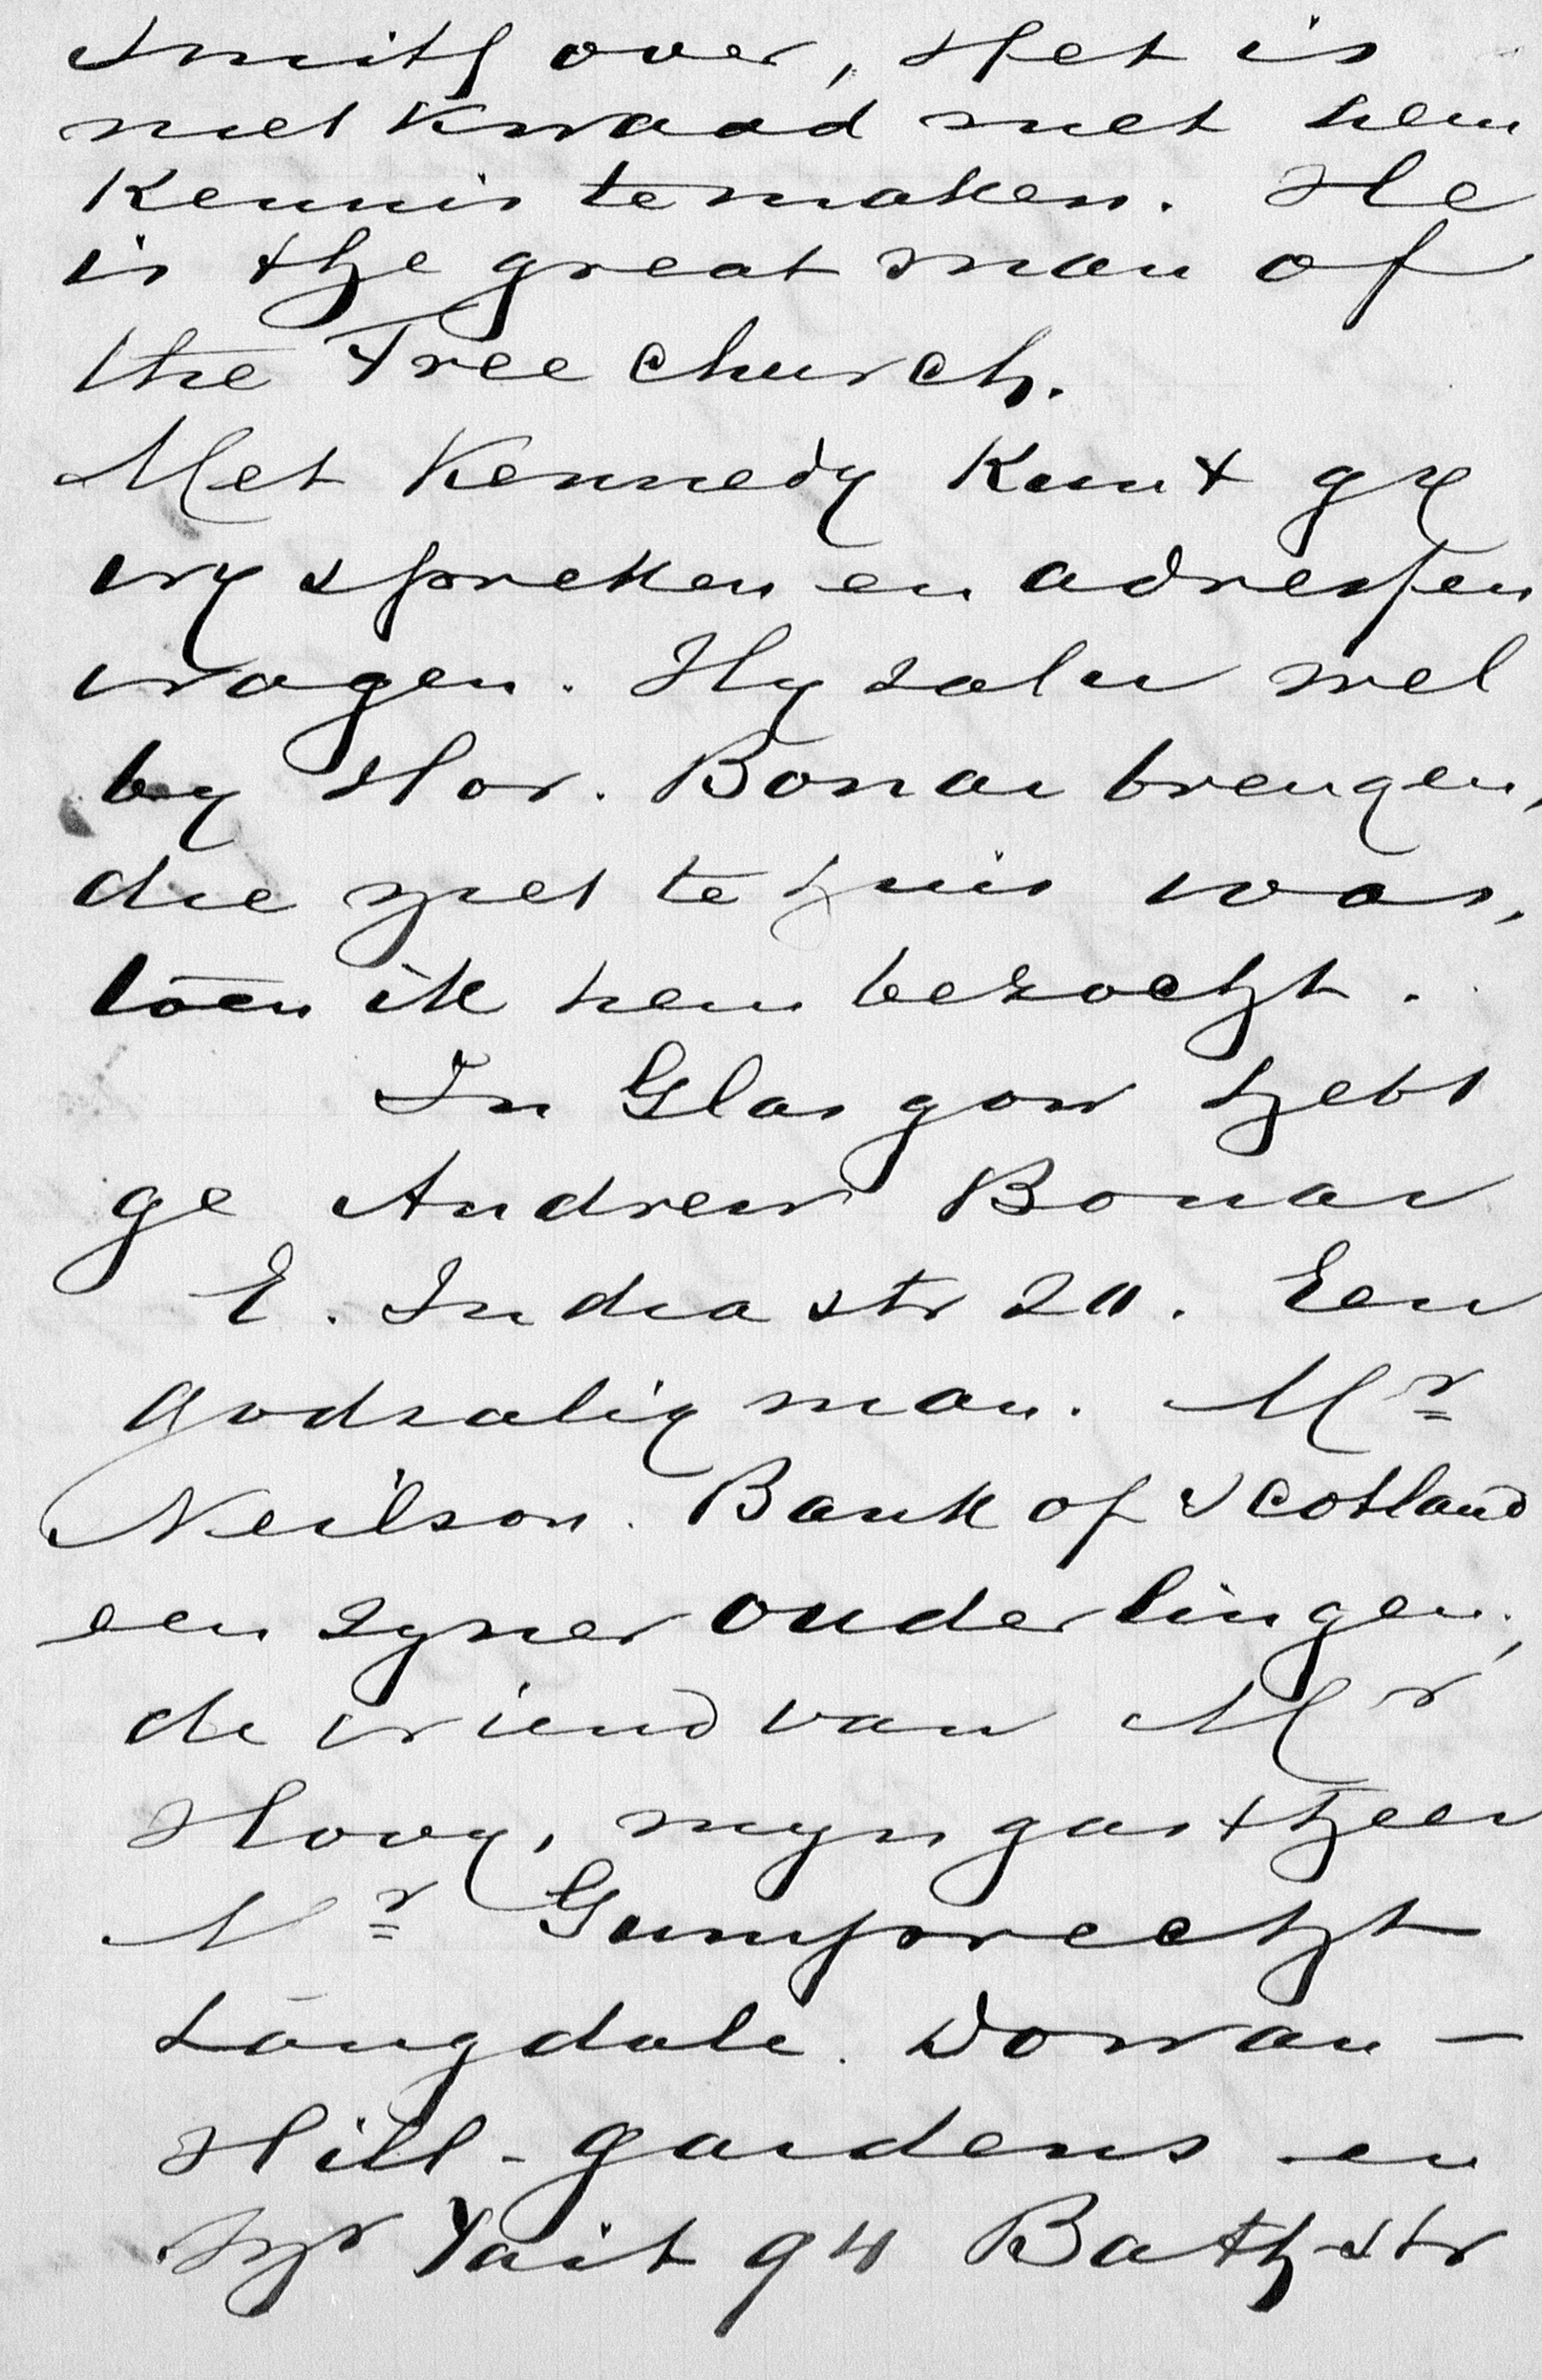 Smith over, Het is
niet kwaad met hem
kennis te maken. He
is the great man of
the Free church.
Met Kennedy kunt gy
vry spreken en adressen
vragen. Hy zal u wel
by Hor. Bonar brengen,
die niet te huis was,
toen ik hem bezocht.
In Glasgow hebt
ge Andrew Bonar
E. India str 20. Een
godzalig man. Mr
Neilson. Bank of Scotland
een zyner ouderlingen,
de vriend van Mr
Hovy, myn gastheer
Mr Gumprecht
Langdale. Dowan-
Hill-gardens en
Tait 94 Bath str